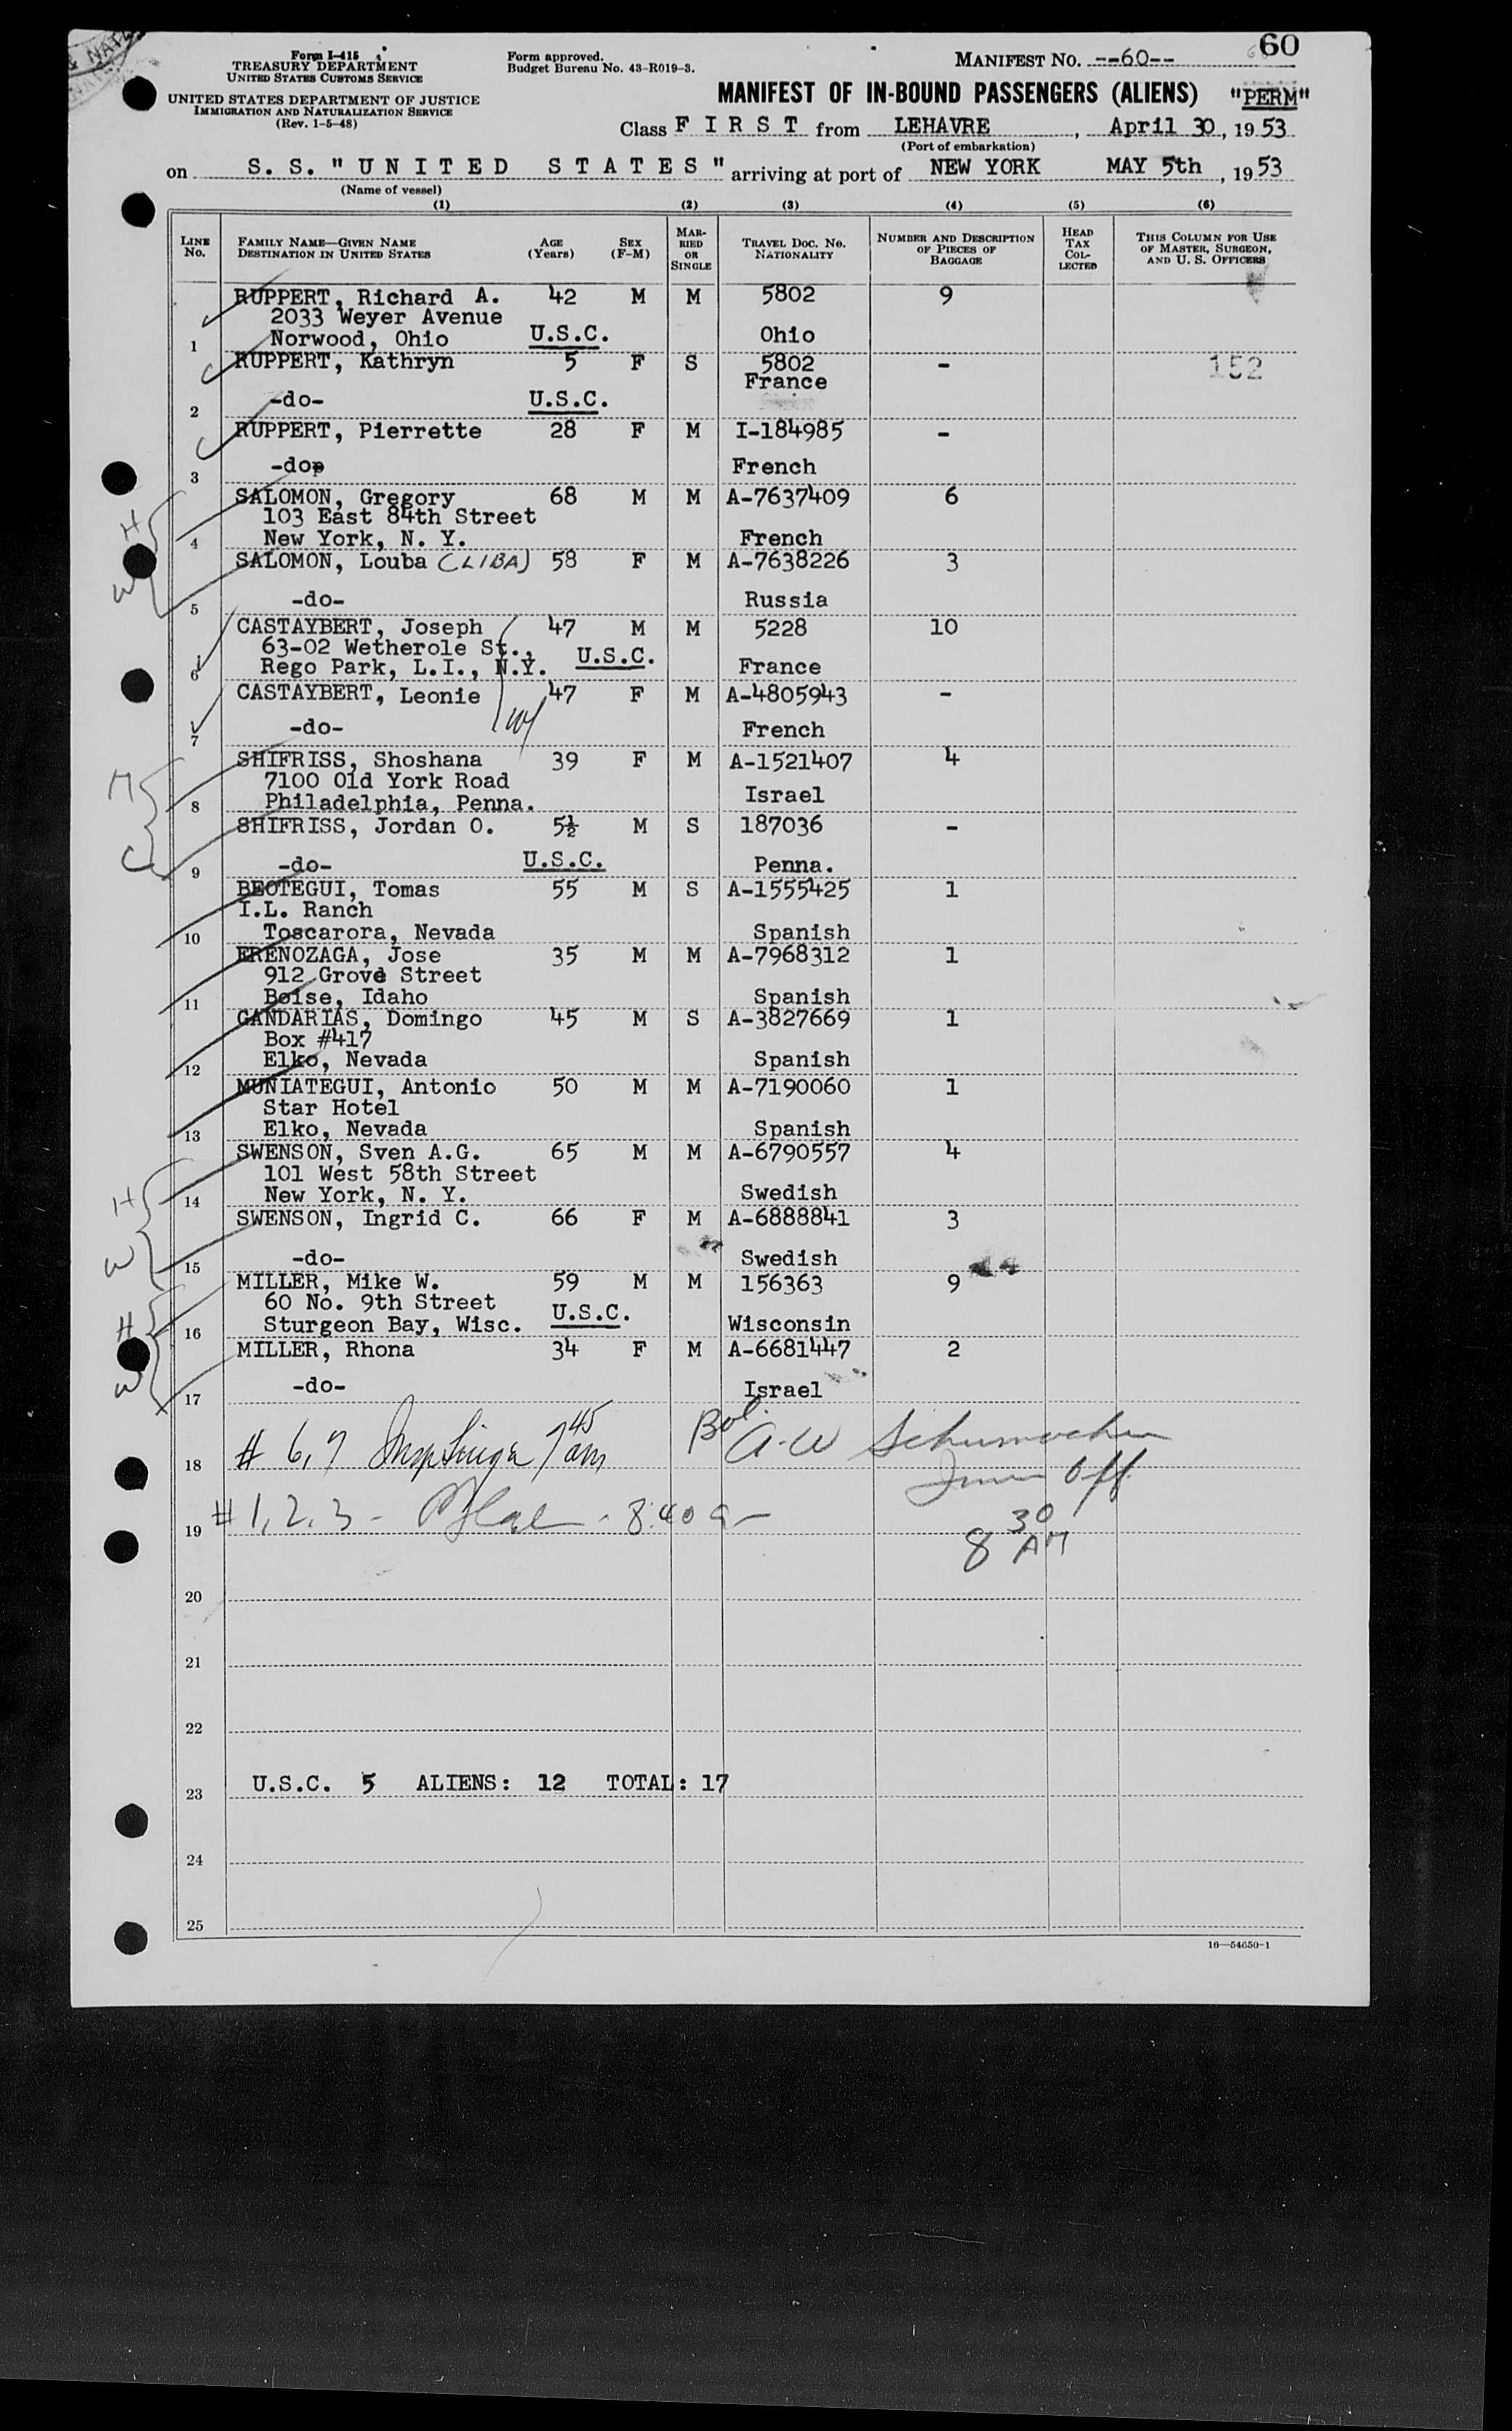 60
Form I-415
TREASURY DEPARTMENT
UNITED STATES CUSTOMS SERVICE
UNITED STATES DEPARTMENT OF JUSTICE
IMMIGRATION AND NATURALIZATION SERVICE
(Rev. 1-5-48)
Form approved.
Budget Bureau No. 43-R019-3.
MANIFEST NO. --60--
MANIFEST OF IN-BOUND PASSENGERS (ALIENS) "PERM"
Class F I R S T from LEHAVRE, April 30, 1953
(Port of embarkation)
on S. S. "U N I T E D S T A T E S" arriving at port of NEW YORK MAY 5th, 1953
(Name of vessel)
(1) (2) (3) (4) (5) (6)
LINE No. FAMILY NAME—GIVEN NAME DESTINATION IN UNITED STATES AGE (Years) SEX (F-M) MARRIED OR SINGLE TRAVEL DOC. NO. NATIONALITY NUMBER AND DESCRIPTION OF PIECES OF BAGGAGE HEAD TAX COLLECTED THIS COLUMN FOR USE OF MASTER, SURGEON, AND U. S. OFFICERS
RUPPERT, Richard A. 42 M M 5802 9
2033 Weyer Avenue
1 Norwood, Ohio U.S.C. Ohio
RUPPERT, Kathryn 5 F S 5802 - 152
France
2 -do- U.S.C.
RUPPERT, Pierrette 28 F M I-184985 -
3 -dop French
SALOMON, Gregory 68 M M A-7637409 6
H 103 East 84th Street
4 New York, N. Y. French
SALOMON, Louba (LIBA) 58 F M A-7638226 3
W
5 -do- Russia
CASTAYBERT, Joseph 47 M M 5228 10
63-02 Wetherole St.,
6 Rego Park, L.I., N.Y. U.S.C. France
CASTAYBERT, Leonie 47 F M A-4805943 -
W
7 -do- French
SHIFRISS, Shoshana 39 F M A-1521407 4
M 7100 Old York Road
8 Philadelphia, Penna. Israel
SHIFRISS, Jordan O. 5½ M S 187036 -
C
9 -do- U.S.C. Penna.
BEOTEGUI, Tomas 55 M S A-1555425 1
I.L. Ranch
10 Toscarora, Nevada Spanish
ERENOZAGA, Jose 35 M M A-7968312 1
912 Grove Street
11 Boise, Idaho Spanish
GANDARIAS, Domingo 45 M S A-3827669 1
Box #417
12 Elko, Nevada Spanish
MUNIATEGUI, Antonio 50 M M A-7190060 1
Star Hotel
13 Elko, Nevada Spanish
SWENSON, Sven A.G. 65 M M A-6790557 4
H 101 West 58th Street
14 New York, N. Y. Swedish
SWENSON, Ingrid C. 66 F M A-6888841 3
W
15 -do- Swedish
MILLER, Mike W. 59 M M 156363 9
60 No. 9th Street
H
16 Sturgeon Bay, Wisc. U.S.C. Wisconsin
MILLER, Rhona 34 F M A-6681447 2
W
17 -do- Israel
18 # 6,7 Insp 7 45 am Bal. A-W Schumacher
Imm Off.
19 #1, 2, 3 - 8:40 a
8 30 AM
20
21
22
23 U.S.C. 5 ALIENS: 12 TOTAL: 17
24
25
16—54650-1